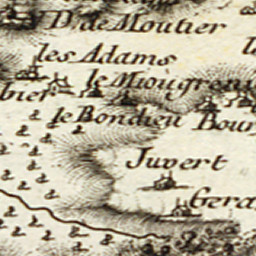 V D de Moutier
les Adams
le Miougreni
bier
le Bondieu Bour
Juvert
Gera